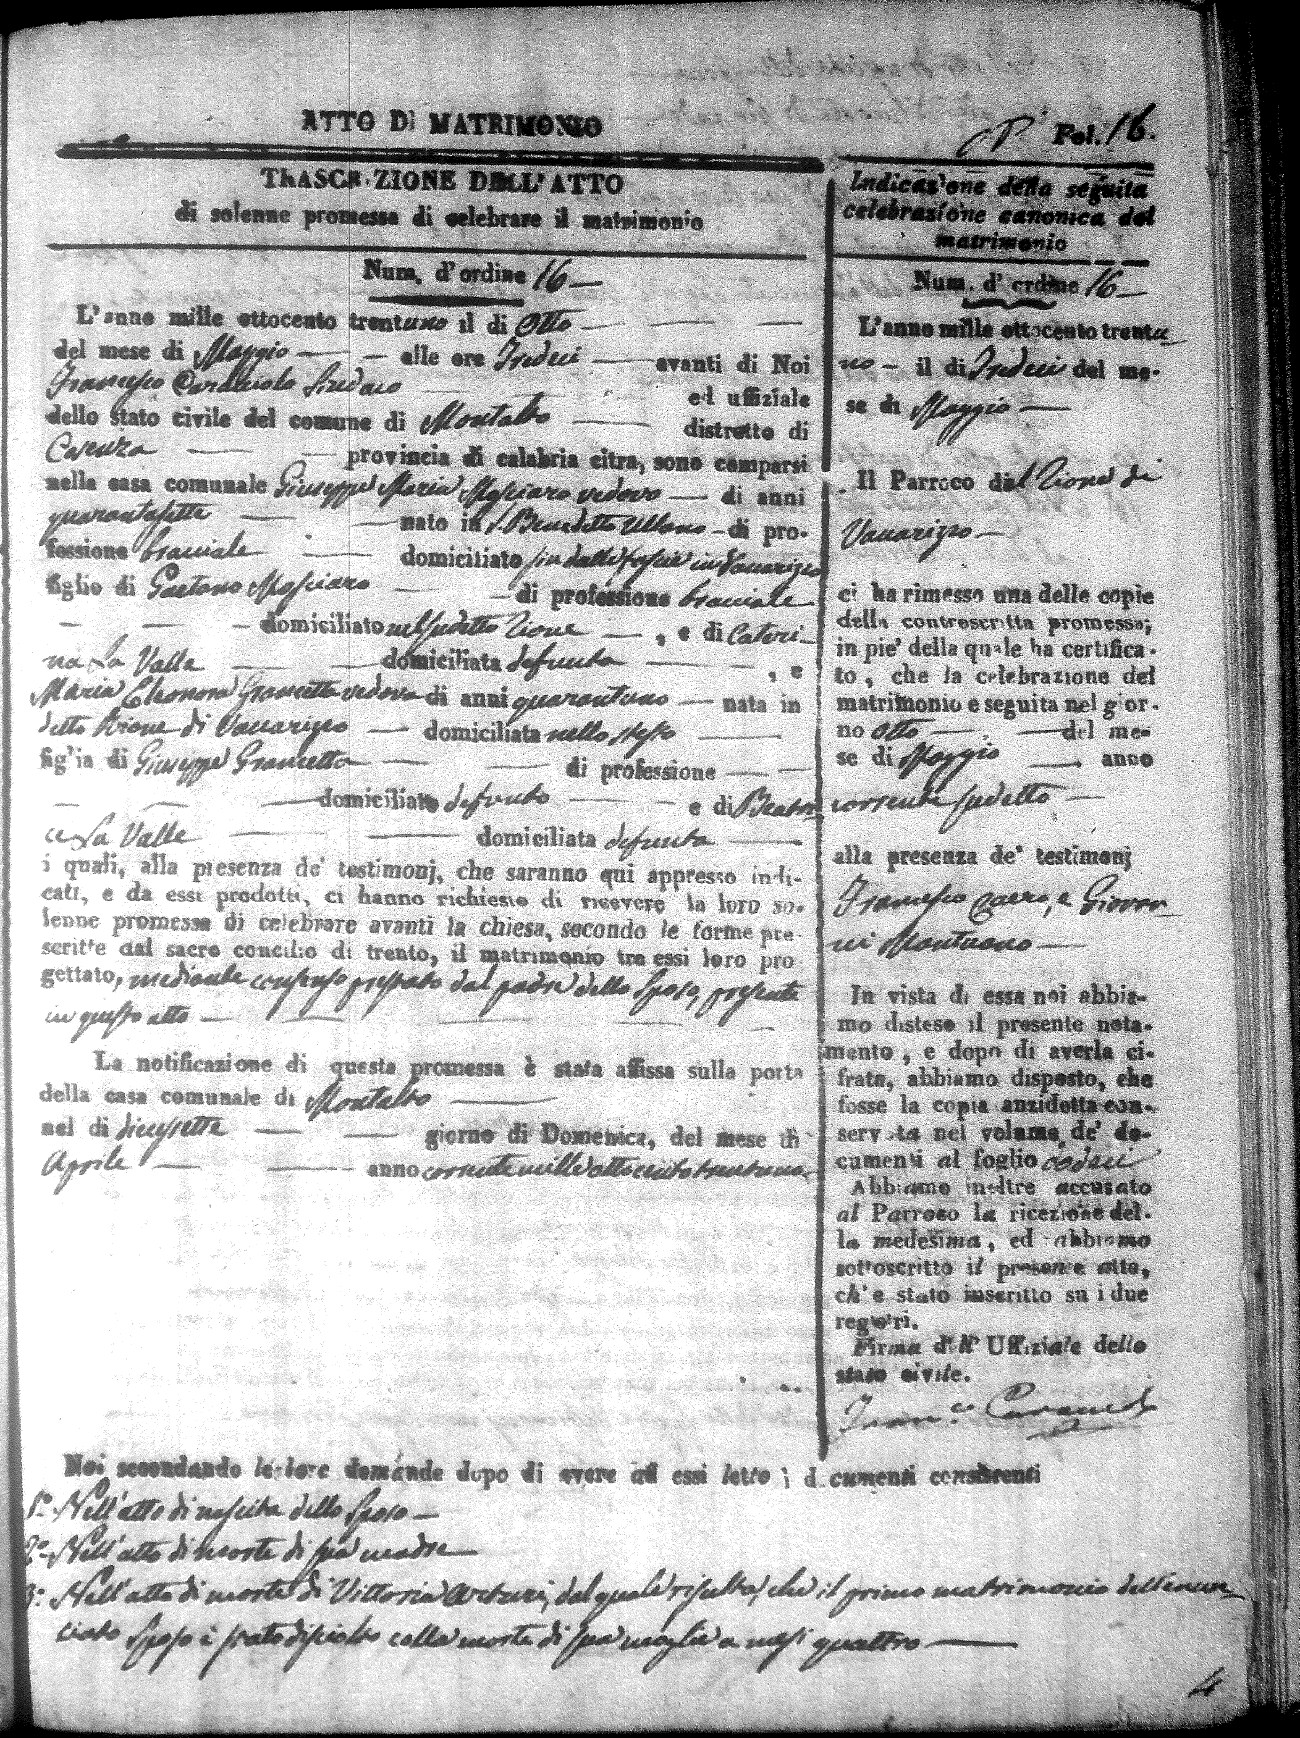 ATTO DI MATRIMONIO
Fol. 16.
TRASCRIZIONE DELL'ATTO
di solenne promessa di celebrare il matrimonio
Num. d'ordine 16 —
L'anno mille ottocento trentuno il di Otto —
del mese di Maggio — alle ore Tredici — avanti di Noi
Francesco Sindaco ed uffiziale
dello stato civile del comune di Montalto — distretto di
Cosenza — provincia di calabria citra, sono comparsi
nella casa comunale Giuseppe Maria Mosciaro vedovo — di anni
quarantasette — nato in S. Benedetto Ullano — di pro-
fessione bracciale — domiciliato in Vaccarizzo
figlio di Gaetano Mosciaro — di professione bracciale
— domiciliato nel sudetto Rione —, e di Cateri-
na La Valle — domiciliata defunta —, e
Maria Eleonora Gramcetta vedova di anni quarantuno — nata in
detto Rione di Vaccarizzo — domiciliata nello stesso —
figlia di Giuseppe Gramcetta — di professione —
— domiciliato defunto — e di Beatri
ce La Valle — domiciliata defunta —
i quali, alla presenza de' testimonj, che saranno qui appresso indi-
cati, e da essi prodotti, ci hanno richiesto di ricevere la loro so-
lenne promessa di celebrare avanti la chiesa, secondo le forme pre-
scritte dal sacro concilio di trento, il matrimonio tra essi loro pro
gettato, mediante consenso prestato dal padre dello Sposo, presente
in questo atto —
La notificazione di questa promessa è stata affissa sulla porta
della casa comunale di Montalto —
nel di diecisette — giorno di Domenica, del mese di
Aprile — anno corrente mille ottocento trentuno
Indicazione della seguita
celebrazione canonica del
matrimonio
Num. d'ordine 16 —
L'anno mille ottocento trentu
no — il di Tredici del me-
se di Maggio —
Il Parroco del Rione di
Vaccarizzo —
ci ha rimesso una delle copie
della controscritta promessa;
in pie' della quale ha certifica-
to, che la celebrazione del
matrimonio e seguita nel gior-
no otto — del me-
se di Maggio — anno
corrente sudetto —
alla presenza de' testimonj
Francesco e Giovan
ni Montuano —
In vista di essa noi abbia-
mo disteso il presente nota-
mento, e dopo di averla ci-
frata, abbiamo disposto, che
fosse la copia anzidetta con-
servata nel volume de' do-
cumenti al foglio
Abbiamo inoltre accusato
al Parroco la ricezione del-
la medesima, ed abbiamo
sottoscritto il presente atto,
ch'e stato inscritto su i due
registri.
Firma dell' Uffiziale dello
stato civile.
Noi secondando le loro domande dopo di avere ad essi letto i documenti consistenti
1º Nell'atto di nascita dello Sposo —
2º Nell'atto di morte di sua madre —
3º Nell'atto di morte di Vittoria Arturi, dal quale risulta, che il primo matrimonio dell'enun
ciato Sposo è stato disciolto colla morte di sua moglie a mesi quattro —
4